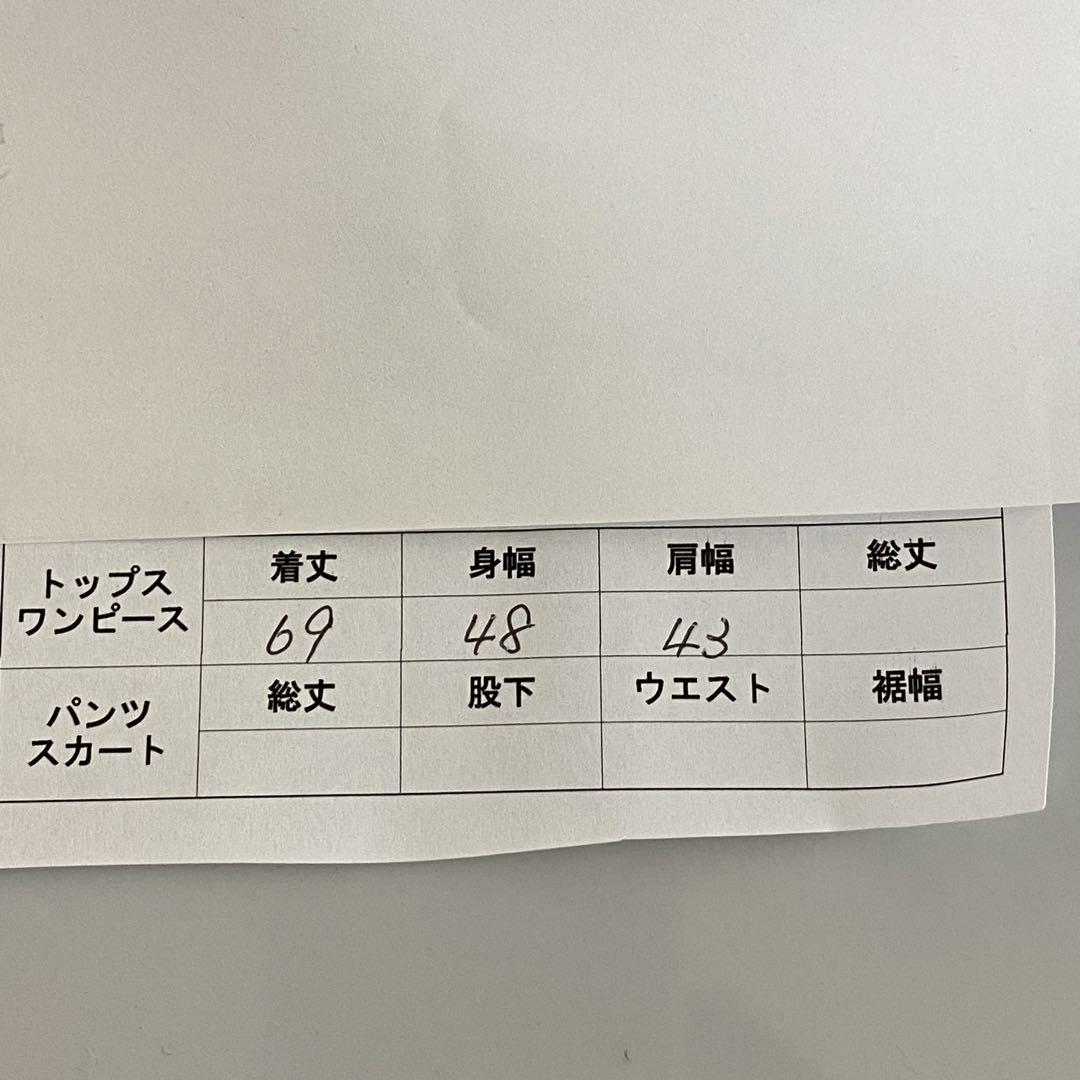 トップス
ワンピース
着丈 身幅 肩幅 総丈
69 48 43
パンツ
スカート
総丈 股下 ウエスト 裾幅